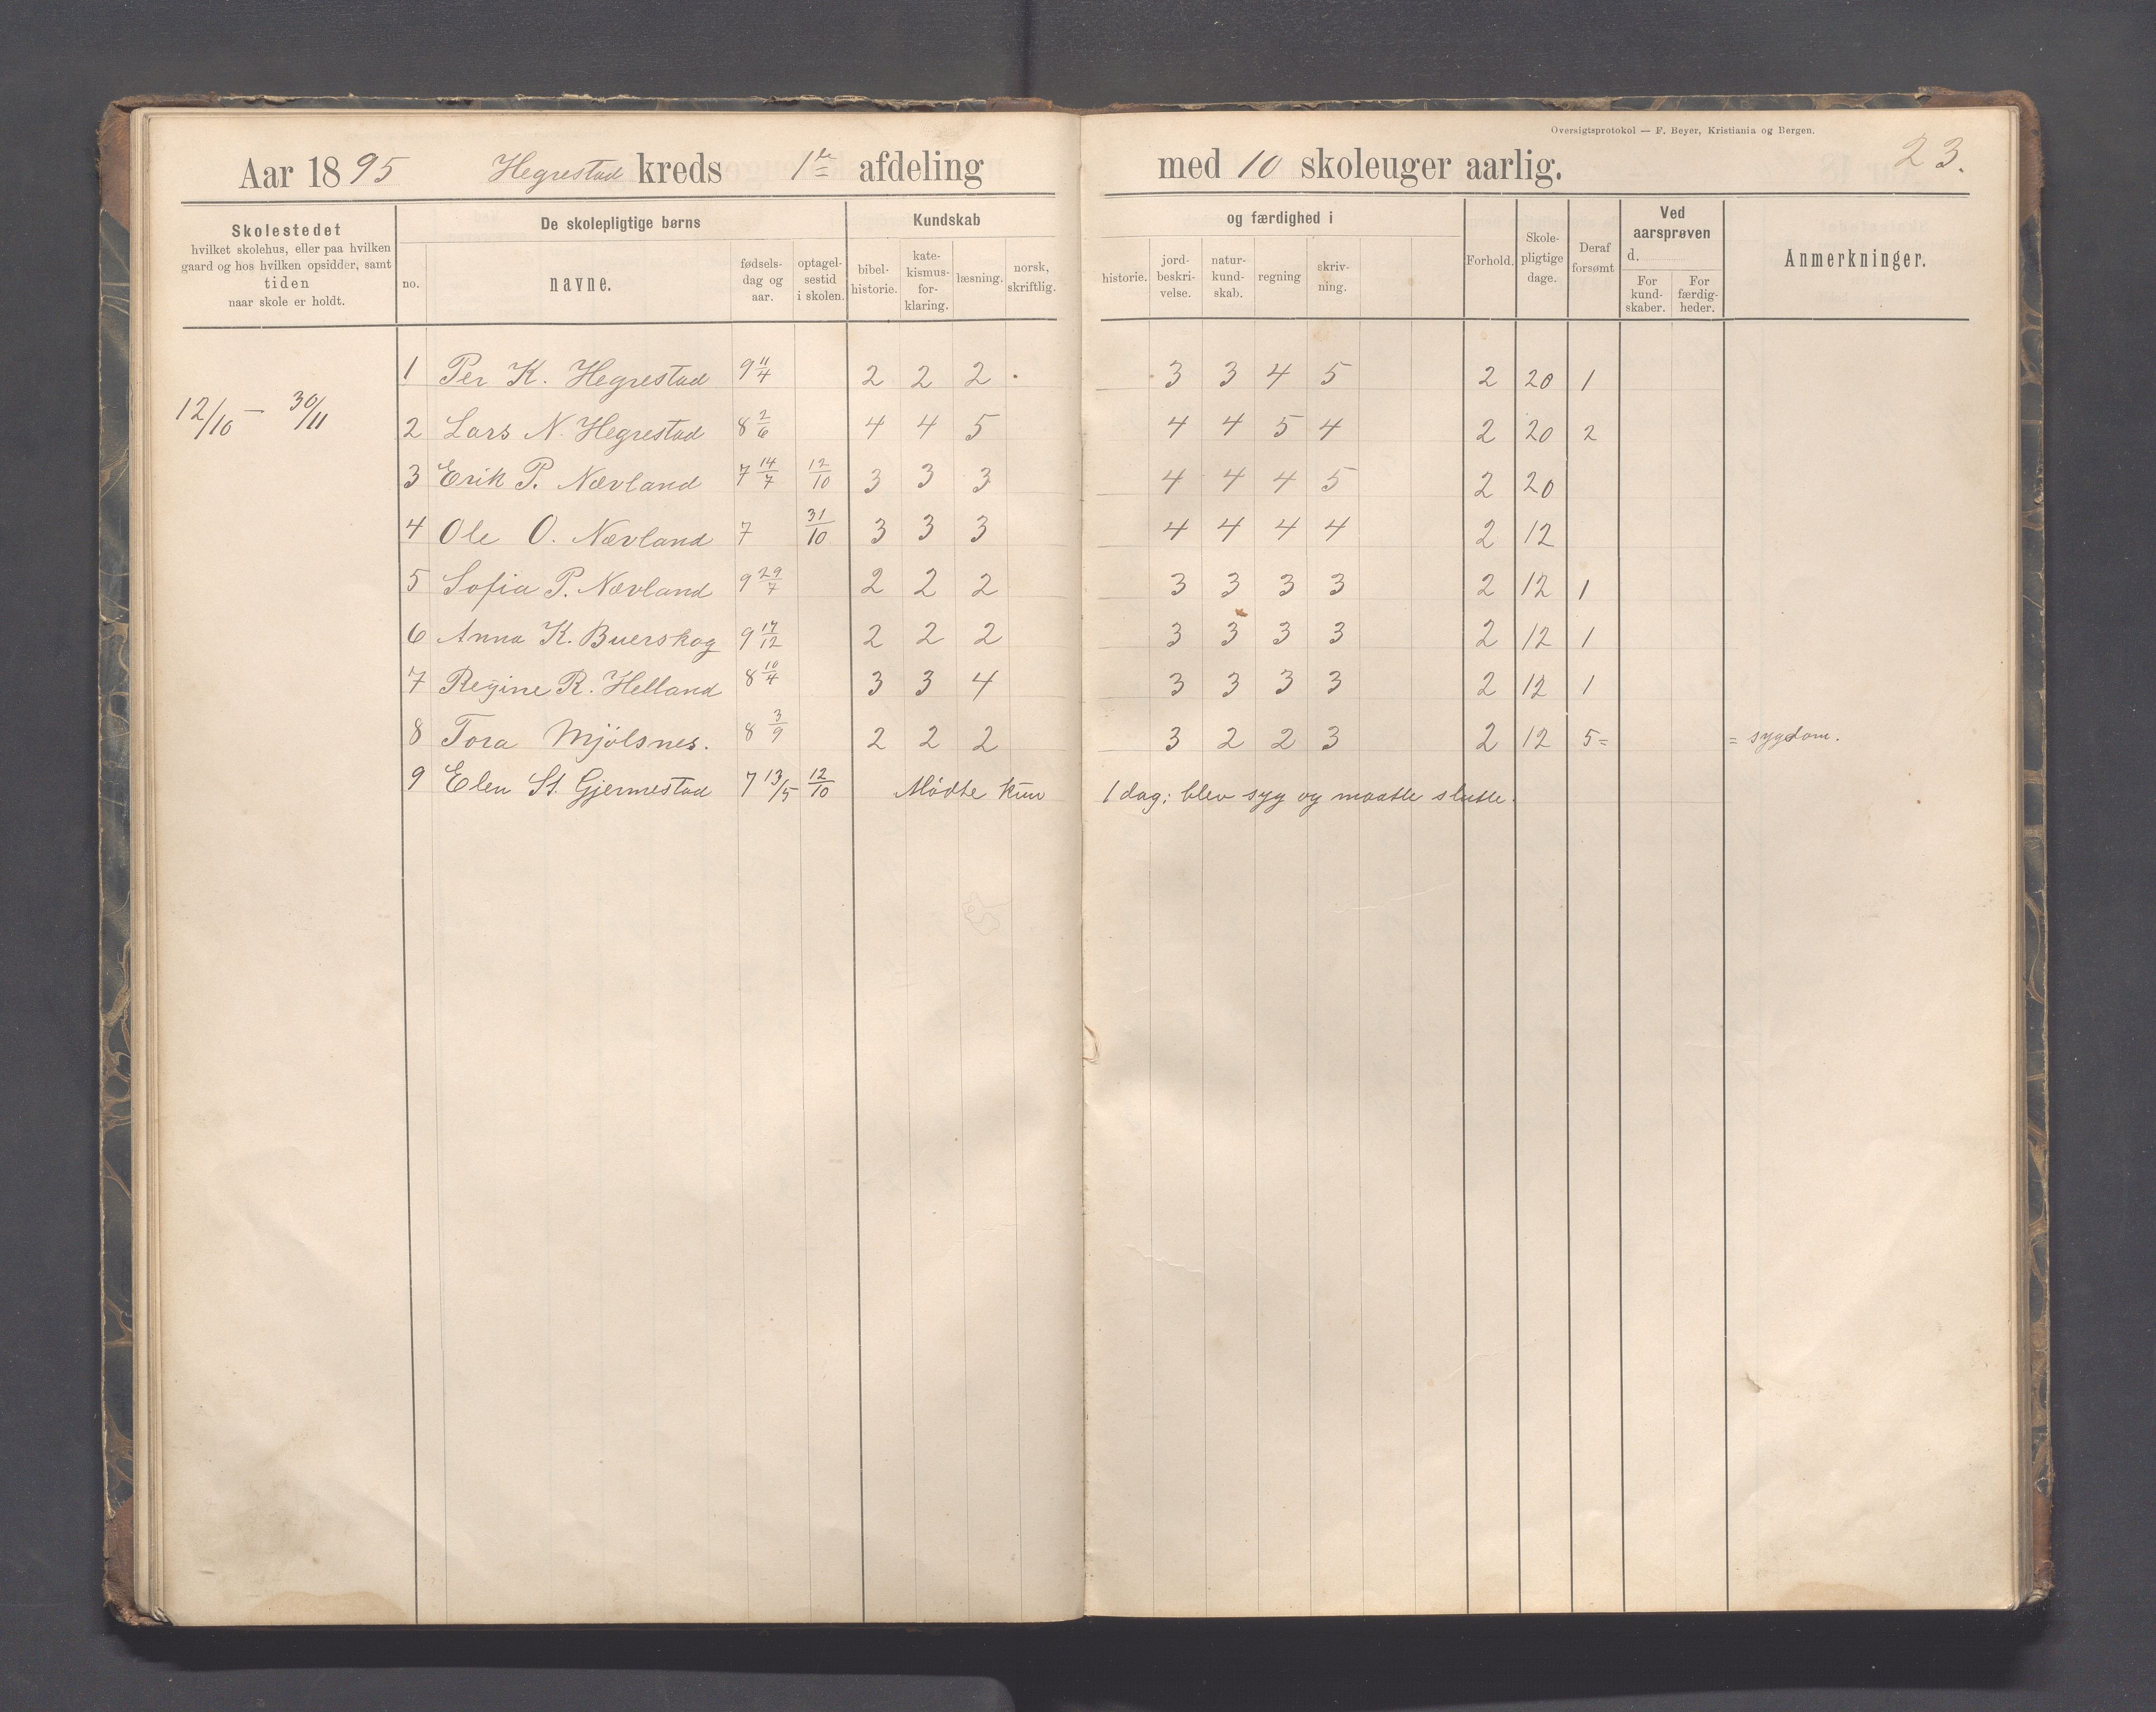 Oversigtsprotokol — F. Beyer, Kristiania og Bergen.
23.
Aar 1895 Hegrestad kreds 1ste afdeling med 10 skoleuger aarlig.
Skolestedet
hvilket skolehus, eller paa hvilken
gaard og hos hvilken opsidder, samt
tiden
naar skole er holdt.
De skolepligtige børns
no.
navne.
fødsels-
dag og
aar.
optagel-
sestid
i skolen.
Kundskab
bibel-
historie.
kate-
kismus-
for-
klaring.
læsning.
norsk,
skriftlig.
og færdighed i
historie.
jord-
beskri-
velse.
natur-
kund-
skab.
regning
skriv-
ning.
Forhold.
Skole-
pligtige
dage.
Deraf
forsømt
Ved
aarsprøven
d.
For
kund-
skaber.
For
færdig-
heder.
Anmerkninger.
12/10 — 30/11
1 Per K. Hegrestad 9 11/4 2 2 2 . 3 3 4 5 2 20 1
2 Lars N. Hegrestad 8 2/6 4 4 5 4 4 5 4 2 20 2
3 Erik P. Nævland 7 14/7 12/10 3 3 3 4 4 4 5 2 20
4 Ole O. Nævland 7 31/10 3 3 3 4 4 4 4 2 12
5 Sofia P. Nævland 9 29/7 2 2 2 3 3 3 3 2 12 1
6 Anna K. Buerskog 9 17/12 2 2 2 3 3 3 3 2 12 1
7 Regine R. Helland 8 10/4 3 3 4 3 3 3 3 2 12 1
8 Tora Mjølsnes. 8 3/9 2 2 2 3 2 2 3 2 12 5= = sygdom.
9 Elen St. Gjermestad 7 13/5 12/10 Mødte kun 1 dag; blev syg og maatte slutte.